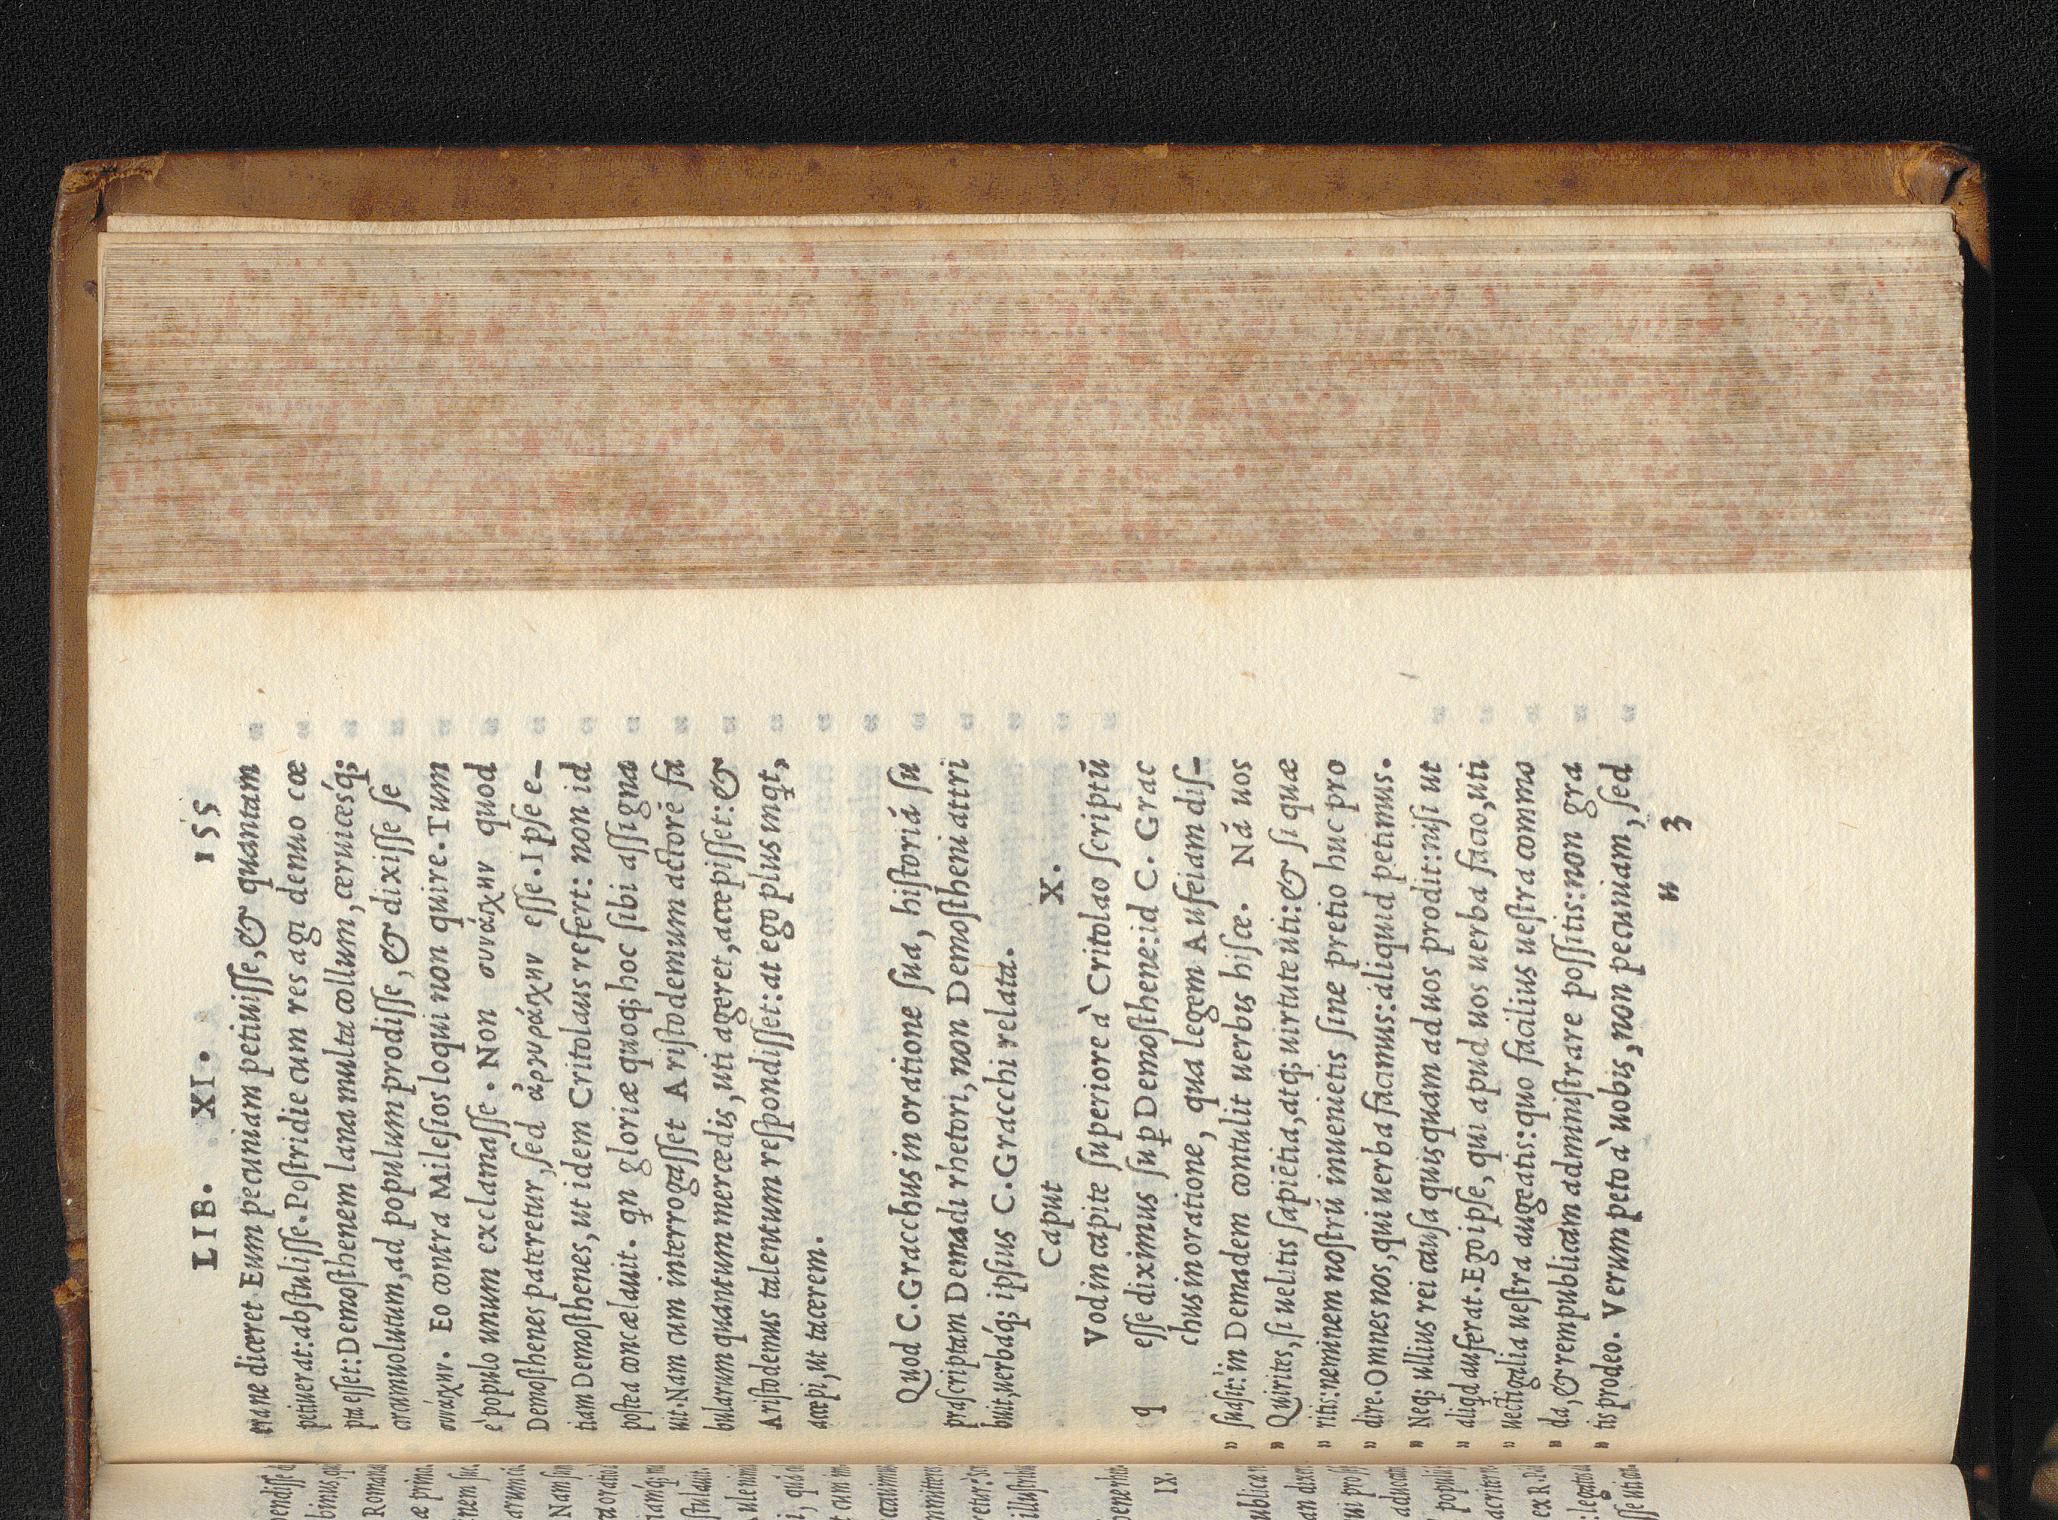 LIB. XI. 155
mane diceret Eum pecuniam petiuisse, & quantam
petiuerat: abstulisse. Postridie cum res agi denuo cœ
pta esset: Demosthenem lana multa collum, ceruicésq;
circumuolutum, ad populum prodisse, & dixisse se
συνάχην. Eo contra Milesios loqui non quire. Tum
è populo unum exclamasse. Non συνάχην quod
Demosthenes pateretur, sed ἀργυράγχην esse. Ipse e-
tiam Demosthenes, ut idem Critolaus refert: non id
postea concælauit. qn gloriæ quoq; hoc sibi assigna
uit. Nam cum interrogasset Aristodemum actorē fa
bularum quantum mercedis, uti ageret, accepisset: &
Aristodemus talentum respondisset: at ego plus inqt,
accepi, ut tacerem.
Quod C. Gracchus in oratione sua, historiā su
prascriptam Demadi rhetori, non Demostheni attri
buit, uerbáq; ipsius C. Gracchi relata.
Caput X.
q Vod in capite superiore à Critolao scriptū
esse diximus sup Demosthene: id C. Grac
chus in oratione, qua legem Aufeiam dis-
" suasit: in Demadem contulit uerbis hisce. Nā uos
" Quirites, si uelitis sapiētia, atq; uirtute uti: & si quæ
" ritis: neminem nostrū inuenietis sine pretio huc pro
" dire. Omnes nos, qui uerba facimus: aliquid petimus.
" Neq; ullius rei causa quisquam ad uos prodit: nisi ut
" aliqd auferat. Ego ipse, qui apud uos uerba facio, uti
" uectigalia uestra augeatis: quo facilius uestra commo
" da, & rempublicam administrare possitis: non gra
" tis prodeo. Verum peto à uobis, non pecuniam, sed
u 3
IX.